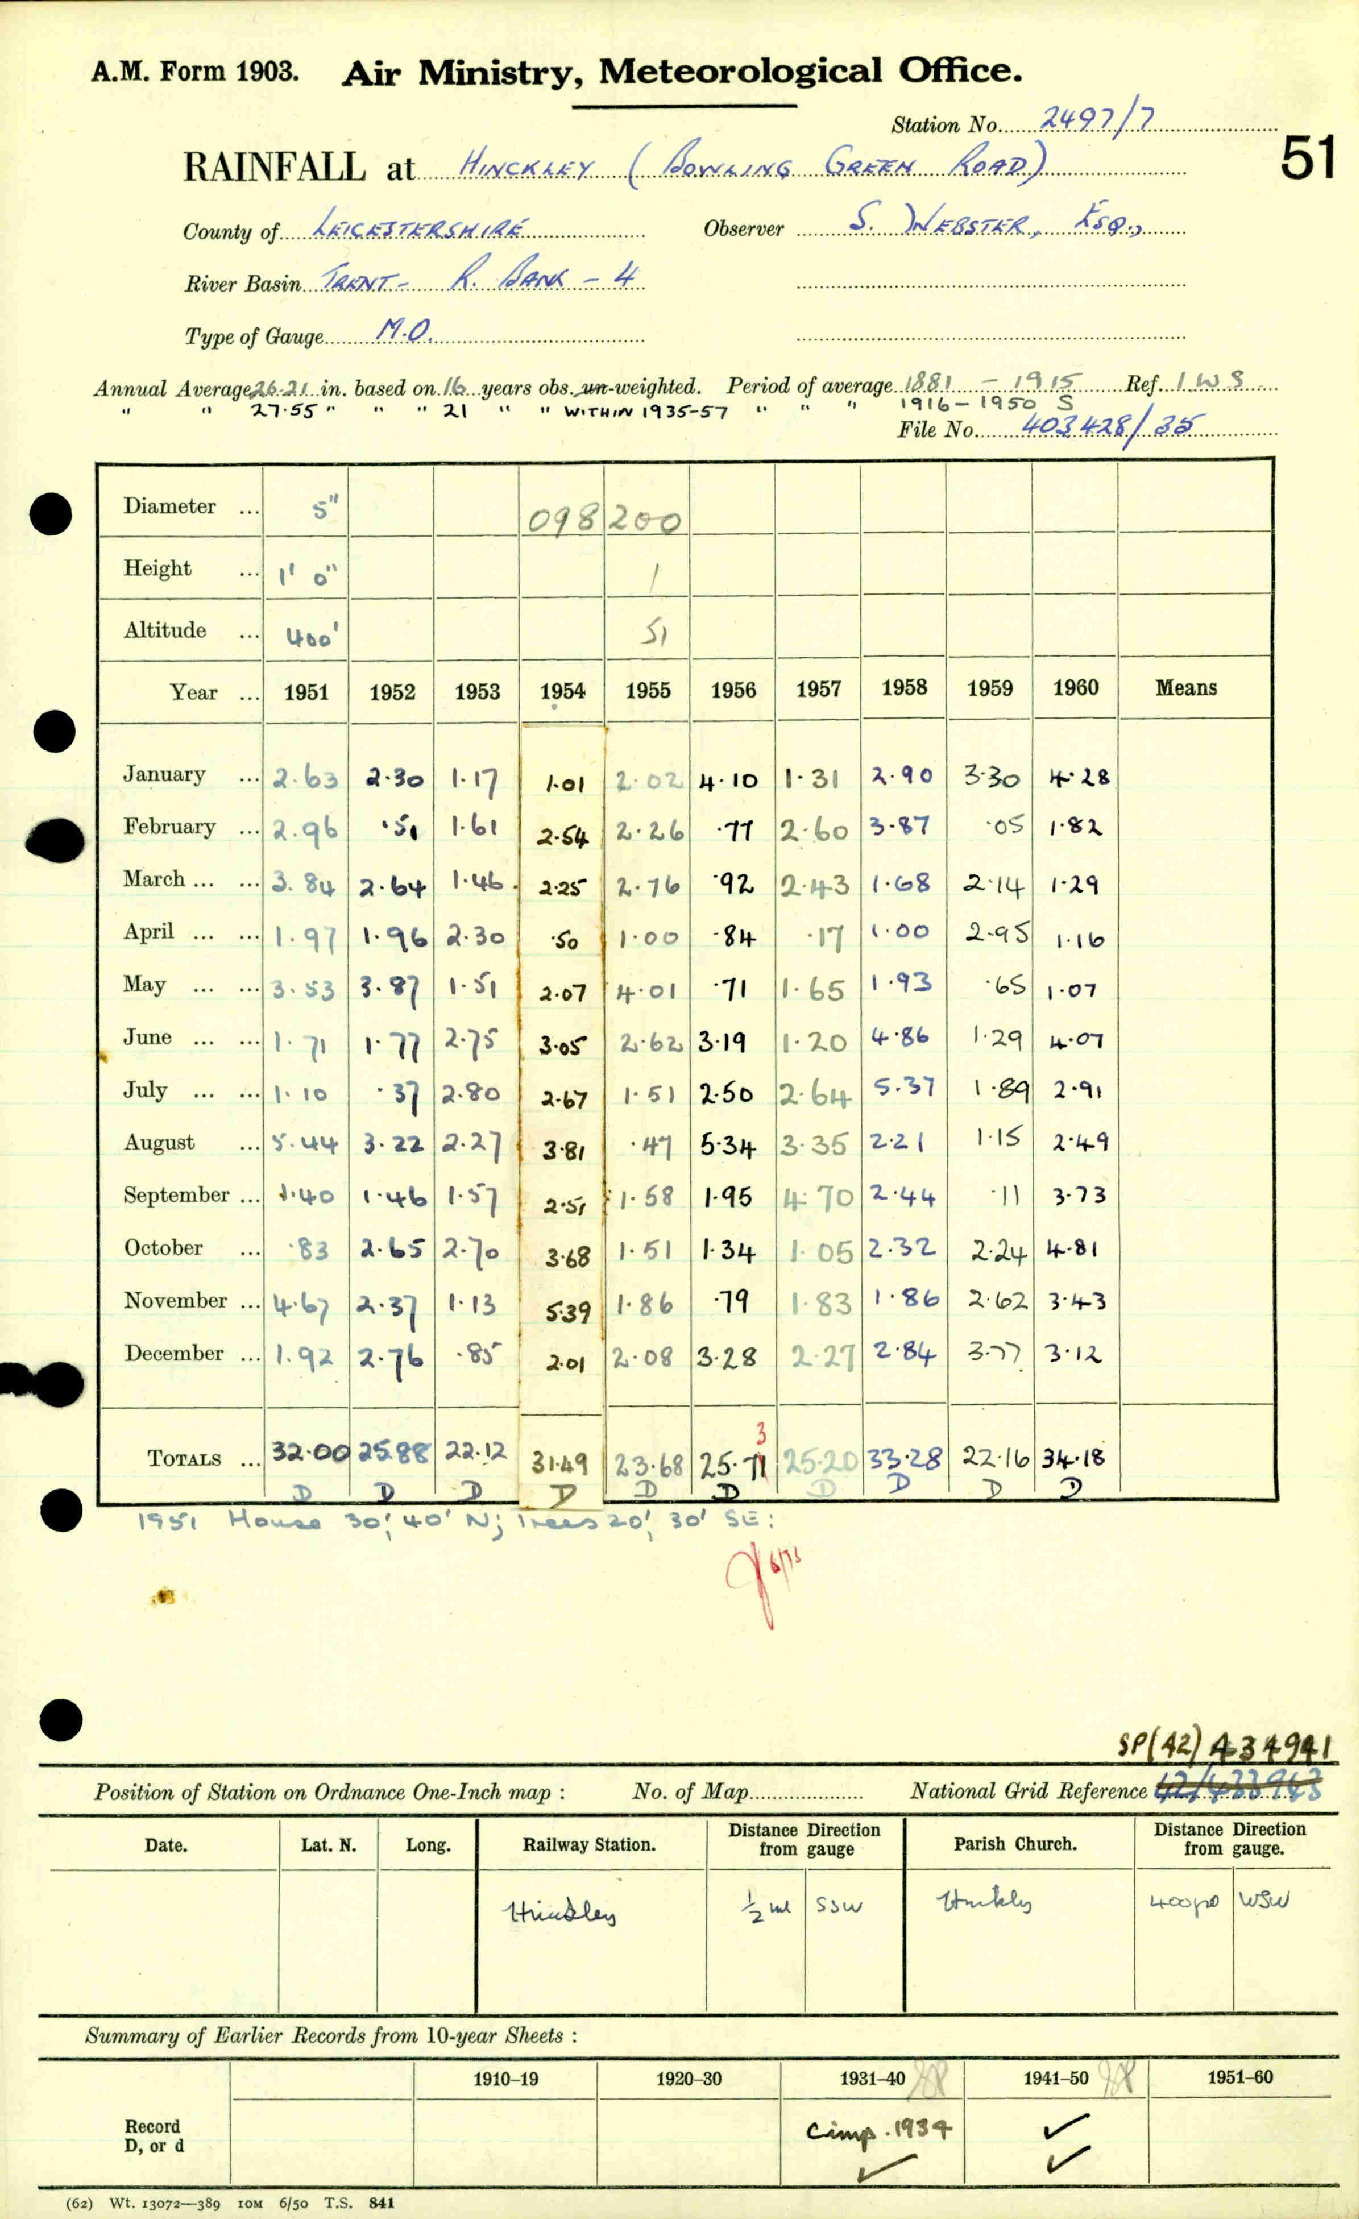 A.M. Form 1903. Air Ministry, Meteorological Office.
Station No. 2497/7
51
RAINFALL at HINCKLEY (BOWLING GREEN ROAD)
County of LEICESTERSHIRE Observer S. WEBSTER, ESQ.,
River Basin TRENT - R. BANK - 4
Type of Gauge M.O.
Annual Average 26.21 in. based on 16 years obs. un-weighted. Period of average 1881 - 1915 Ref. I W S
" " 27.55 " " " 21 " " WITHIN 1935-57 " " " 1916-1950 S
File No. 403428/35
Diameter ... 5" 098 200
Height ... 1' 0" 1
Altitude ... 400' 51
Year ... 1951 1952 1953 1954 1955 1956 1957 1958 1959 1960 Means
January ... 2.63 2.30 1.17 1.01 2.02 4.10 1.31 2.90 3.30 4.28
February ... 2.96 .51 1.61 2.54 2.26 .77 2.60 3.87 .05 1.82
March ... ... 3.84 2.64 1.46 2.25 2.76 .92 2.43 1.68 2.14 1.29
April ... ... 1.97 1.96 2.30 .50 1.00 .84 .17 1.00 2.95 1.16
May ... ... 3.53 3.87 1.51 2.07 4.01 .71 1.65 1.93 .65 1.07
June ... ... 1.71 1.77 2.75 3.05 2.62 3.19 1.20 4.86 1.29 4.07
July ... ... 1.10 .37 2.80 2.67 1.51 2.50 2.64 5.37 1.89 2.91
August ... 5.44 3.22 2.27 3.81 .47 5.34 3.35 2.21 1.15 2.49
September ... 1.40 1.46 1.57 2.51 1.58 1.95 4.70 2.44 .11 3.73
October ... .83 2.65 2.70 3.68 1.51 1.34 1.05 2.32 2.24 4.81
November ... 4.67 2.37 1.13 5.39 1.86 .79 1.83 1.86 2.62 3.43
December ... 1.92 2.76 .85 2.01 2.08 3.28 2.27 2.84 3.77 3.12
3
TOTALS ... 32.00 25.88 22.12 31.49 23.68 25.71 25.20 33.28 22.16 34.18
D D D D D D D D D D
1951 House 30', 40' N; Trees 20', 30' SE:
6/73
SP(42) 434941
Position of Station on Ordnance One-Inch map : No. of Map National Grid Reference 42/433943
Date. Lat. N. Long. Railway Station. Distance from Direction gauge Parish Church. Distance from Direction gauge.
Hinckley ½ ml SSW Hinckley 400yd WSW
Summary of Earlier Records from 10-year Sheets :
1910–19 1920–30 1931–40 1941–50 1951–60
Record Cimp. 1934 ✓
D, or d ✓ ✓
(62) Wt. 13072—389 10M 6/50 T.S. 841